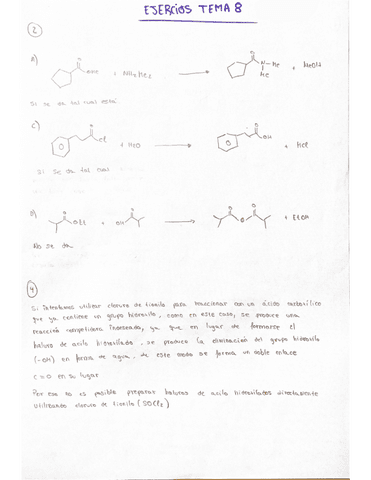 EJERCIOS TEMA 8
2
A)
O O
OMe + NHMe2 N Me + MeOH
Me
Si se da tal cual está
C)
O O
Cl + H2O OH + HCl
Si se da tal cual
D)
O O O O
OEt + OH O + EtOH
No se da
4
Si intentamos utilizar cloruro de tionilo para reaccionar con un ácido carboxílico
que ya contiene un grupo hidroxilo, como en este caso, se produce una
reacción competidora indeseada, ya que en lugar de formarse el
haluro de acilo hidroxilado, se produce la eliminación del grupo hidroxilo
(-OH) en forma de agua, de este modo se forma un doble enlace
C=O en su lugar
Por eso no es posible preparar haluros de acilo hidroxilados directamente
utilizando cloruro de tionilo (SOCl2)